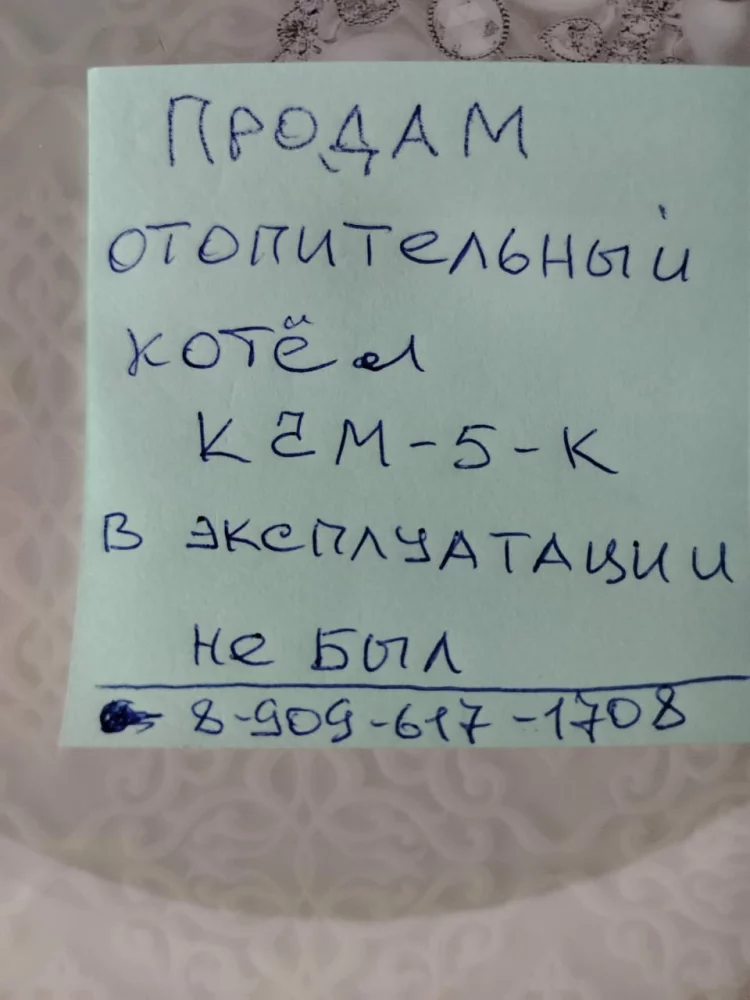 ПРОДАМ
ОТОПИТЕЛЬНЫЙ
КОТЁЛ
КЧМ-5-К
В ЭКСПЛУАТАЦИИ
НЕ БЫЛ
8-909-617-1708